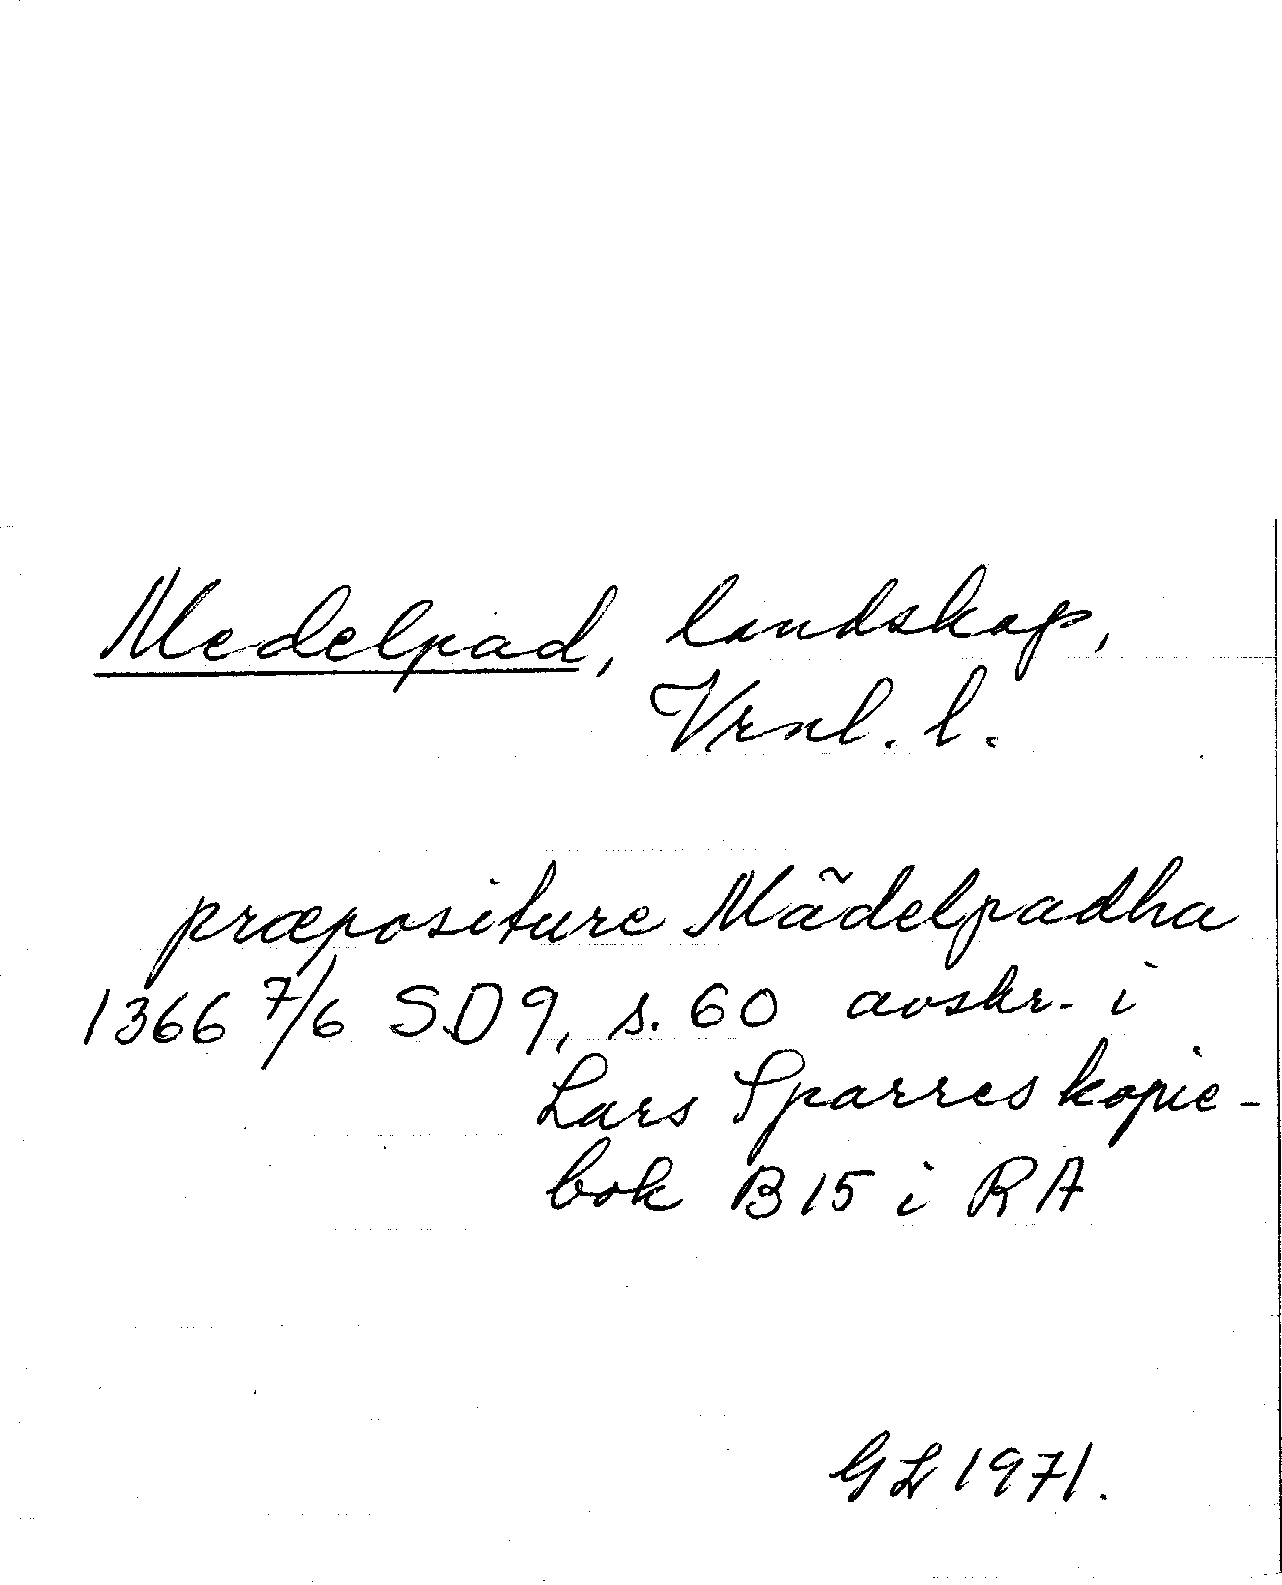 Medelpad, landskap,
Vrnl. l.
præpositure Mãdelpadha
1366 7/6 SD 9, s. 60 avskr. i
Lars Sparres kopie-
bok B 15 i RA
GL 1971.